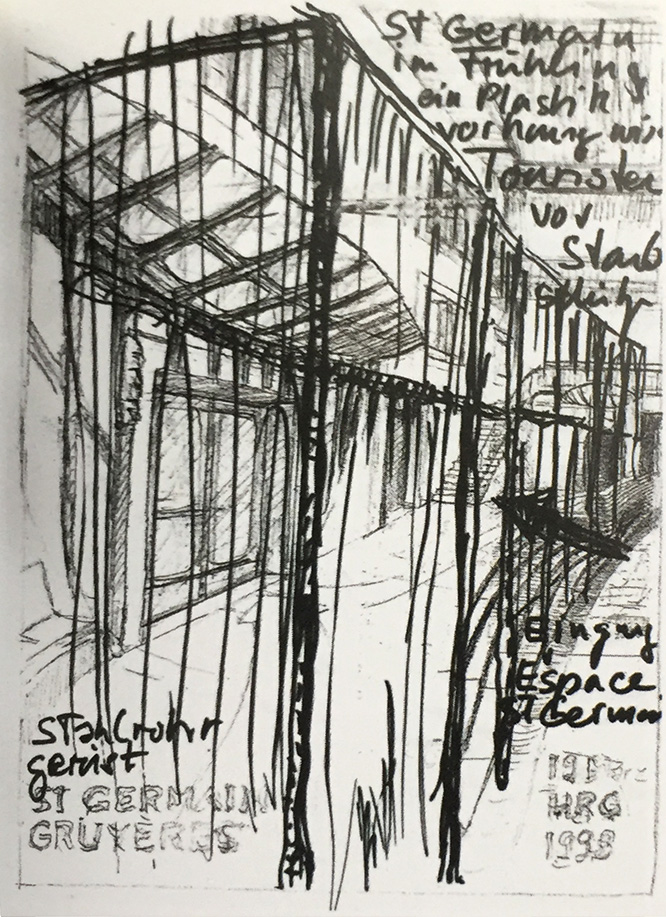 St Germain
im Frühling
ein Plastik
vorhang wir
Touristen
vor
Staub
Eingang
Espace
St Germai
Stahlrohr
gerüst
ST GERMAIN
GRUYÈRES
HRG
1998